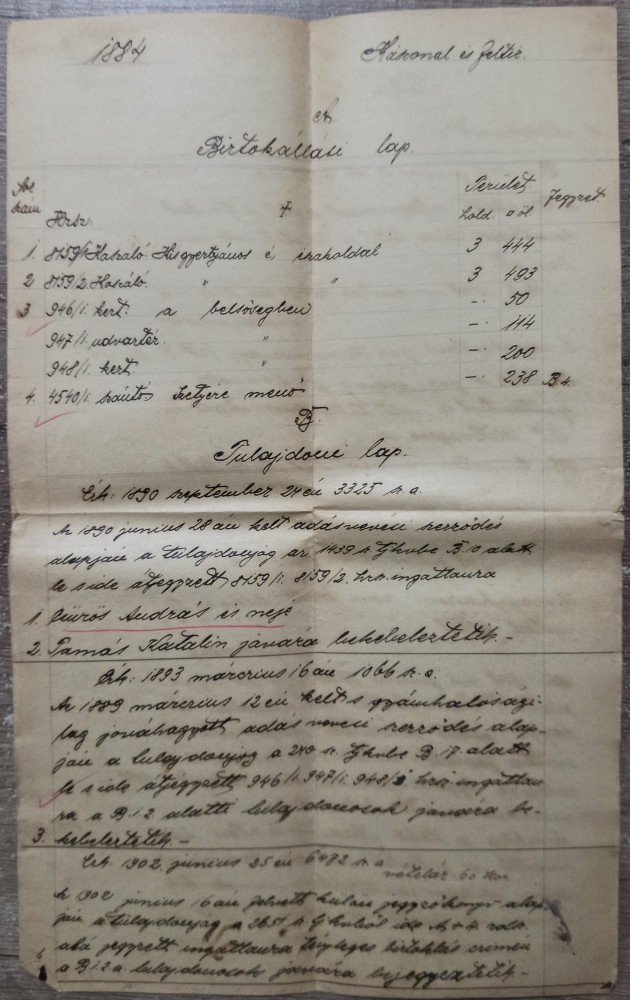 1884 Kászonal és feltíz.
A
Birtokállási lap.
Sor szám Hrsz. † Terület Jegyzet
hold. □ öl
1. 8159/1 Kaszáló Kisgyertyános és 3 444
2 8159/2. Kaszáló. " " 3 493
3 946/1. kert. a belsőségben -. 50
947/1. udvartér. " -. 114
948/1. kert. " -. 200
4. 4540/1. szántó menő -. 238 B 4.
B.
Tulajdoni lap.
Érk: 1890 szeptember 24 én 3325 sz. a.
Az 1890 junius 28 án kelt adásvevési szerződés
alapján a tulajdonjog az 1439 sz. tjkvbe B alatt
s ide átjegyzett 8159/1. 8159/2. hrsz. ingatlanra
1. András és neje
2 Tamás Katalin javára bekebeleztetik. -
Érk: 1893 március 16 án 1066 sz. a.
Az 1889 március 12 én kelt s gyámhatósági-
lag jóváhagyott adásvevési szerződés alap-
ján a tulajdonjog a 240 sz. tjkvbe B. 17. alatt
s ide átjegyzett 946/1. 947/1. 948/1 hrsz. ingatlan
ra a B. 1 2 alatti tulajdonosok javára be-
3. kebeleztetik. -
Érk. 1902. junius 25 én 6482 sz. a vételár 60 kor.
Az 1902 junius 16 án felvett külön jegyzőkönyv alap-
ján a tulajdonjog a 2651 sz. tjkvből ide A + 4. rdsz.
alá jegyzett ingatlanra tényleges birtoklás címén
a B 1 2 a. tulajdonosok javára bejegyeztetik. -